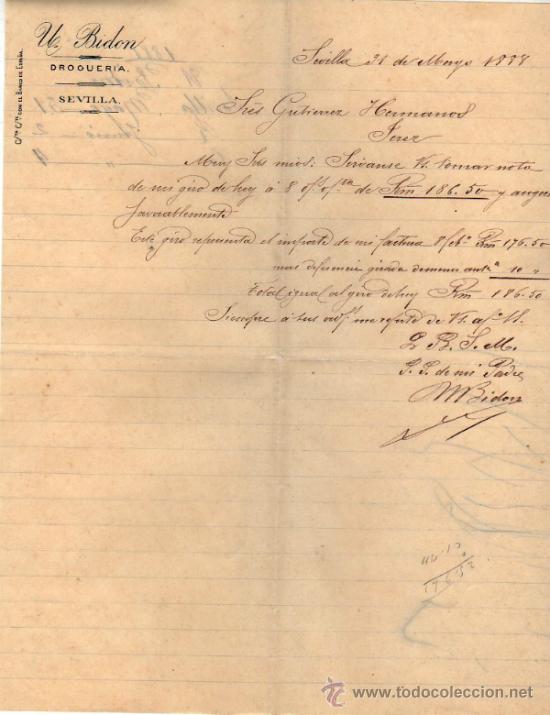 U. Bidon
DROGUERIA.
SEVILLA.
C/ta C/te CON EL BANCO DE ESPAÑA.
Sevilla 31 de Mayo 1888
Sres Gutierrez Hermanos
Jerez
Muy Sres mios: Sirvanse Vs. tomar nota
de mi giro de hoy á 8 d/ f/ de Rvn 186.50 y
favorablemente
Este giro representa el importe de mi factura 8 feb.º Rvn 176.50
mas diferencia girada de menos antª 10 "
Total igual al giro de hoy Rvn 186.50
Siempre á sus me repito de Vs. af.º SS.
Q. B. S. M.
P. P. de mi Padre
Bidon
www.todocoleccion.net